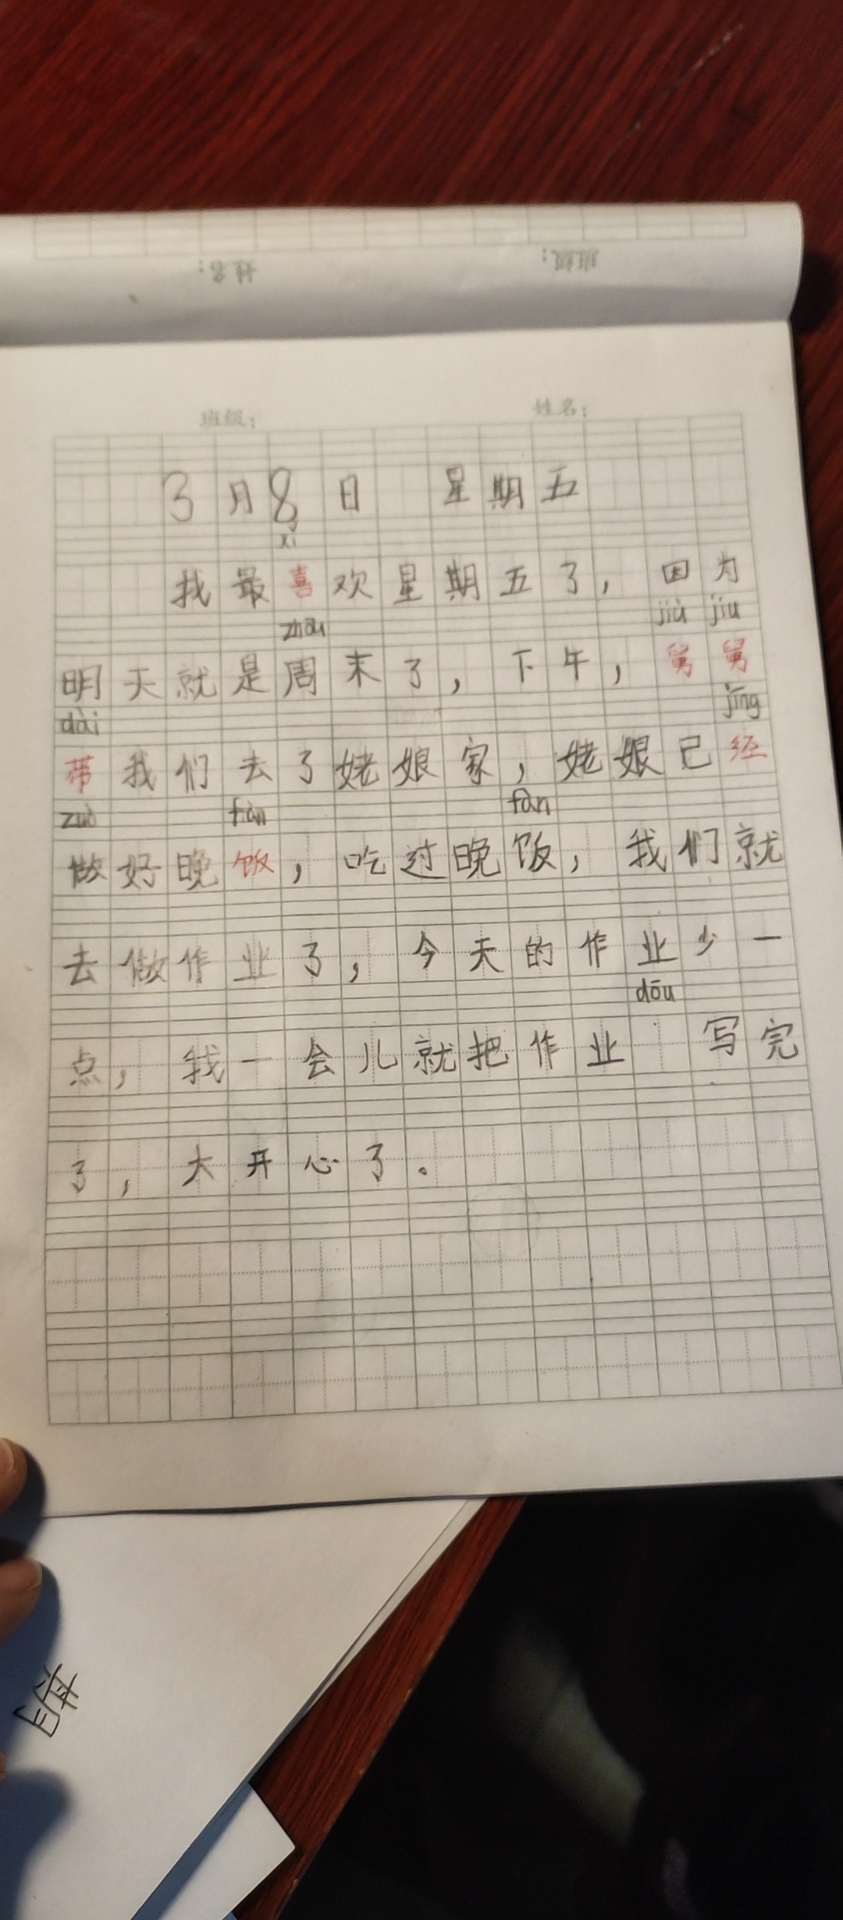 姓名：
班级：
班级：
姓名：
3月8日 星期五
xǐ
我最喜欢星期五了，因为
zhōu jiù jiu
明天就是周末了，下午，舅舅
dài jīng
带我们去了姥娘家，姥娘已经
zuò fàn fàn
做好晚饭，吃过晚饭，我们就
去做作业了，今天的作业少一
dōu
点，我一会儿就把作业 写完
了，大开心了。
期